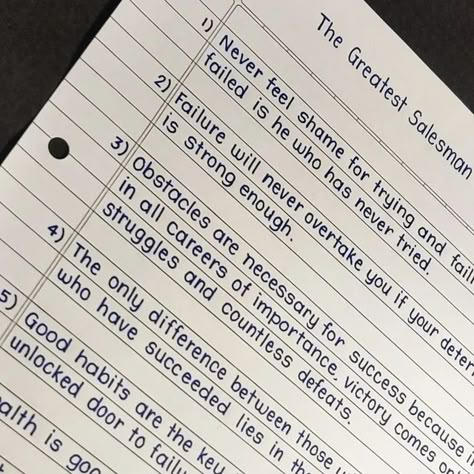 The Greatest Salesman
1) Never feel shame for trying and fail
failed is he who has never tried.
2) Failure will never overtake you if your deter
is strong enough.
3) Obstacles are necessary for success because i
in all careers of importance, victory comes on
struggles and countless defeats.
4) The only difference between those
who have succeeded lies in th
5) Good habits are the key
unlocked door to failu
alth is goo